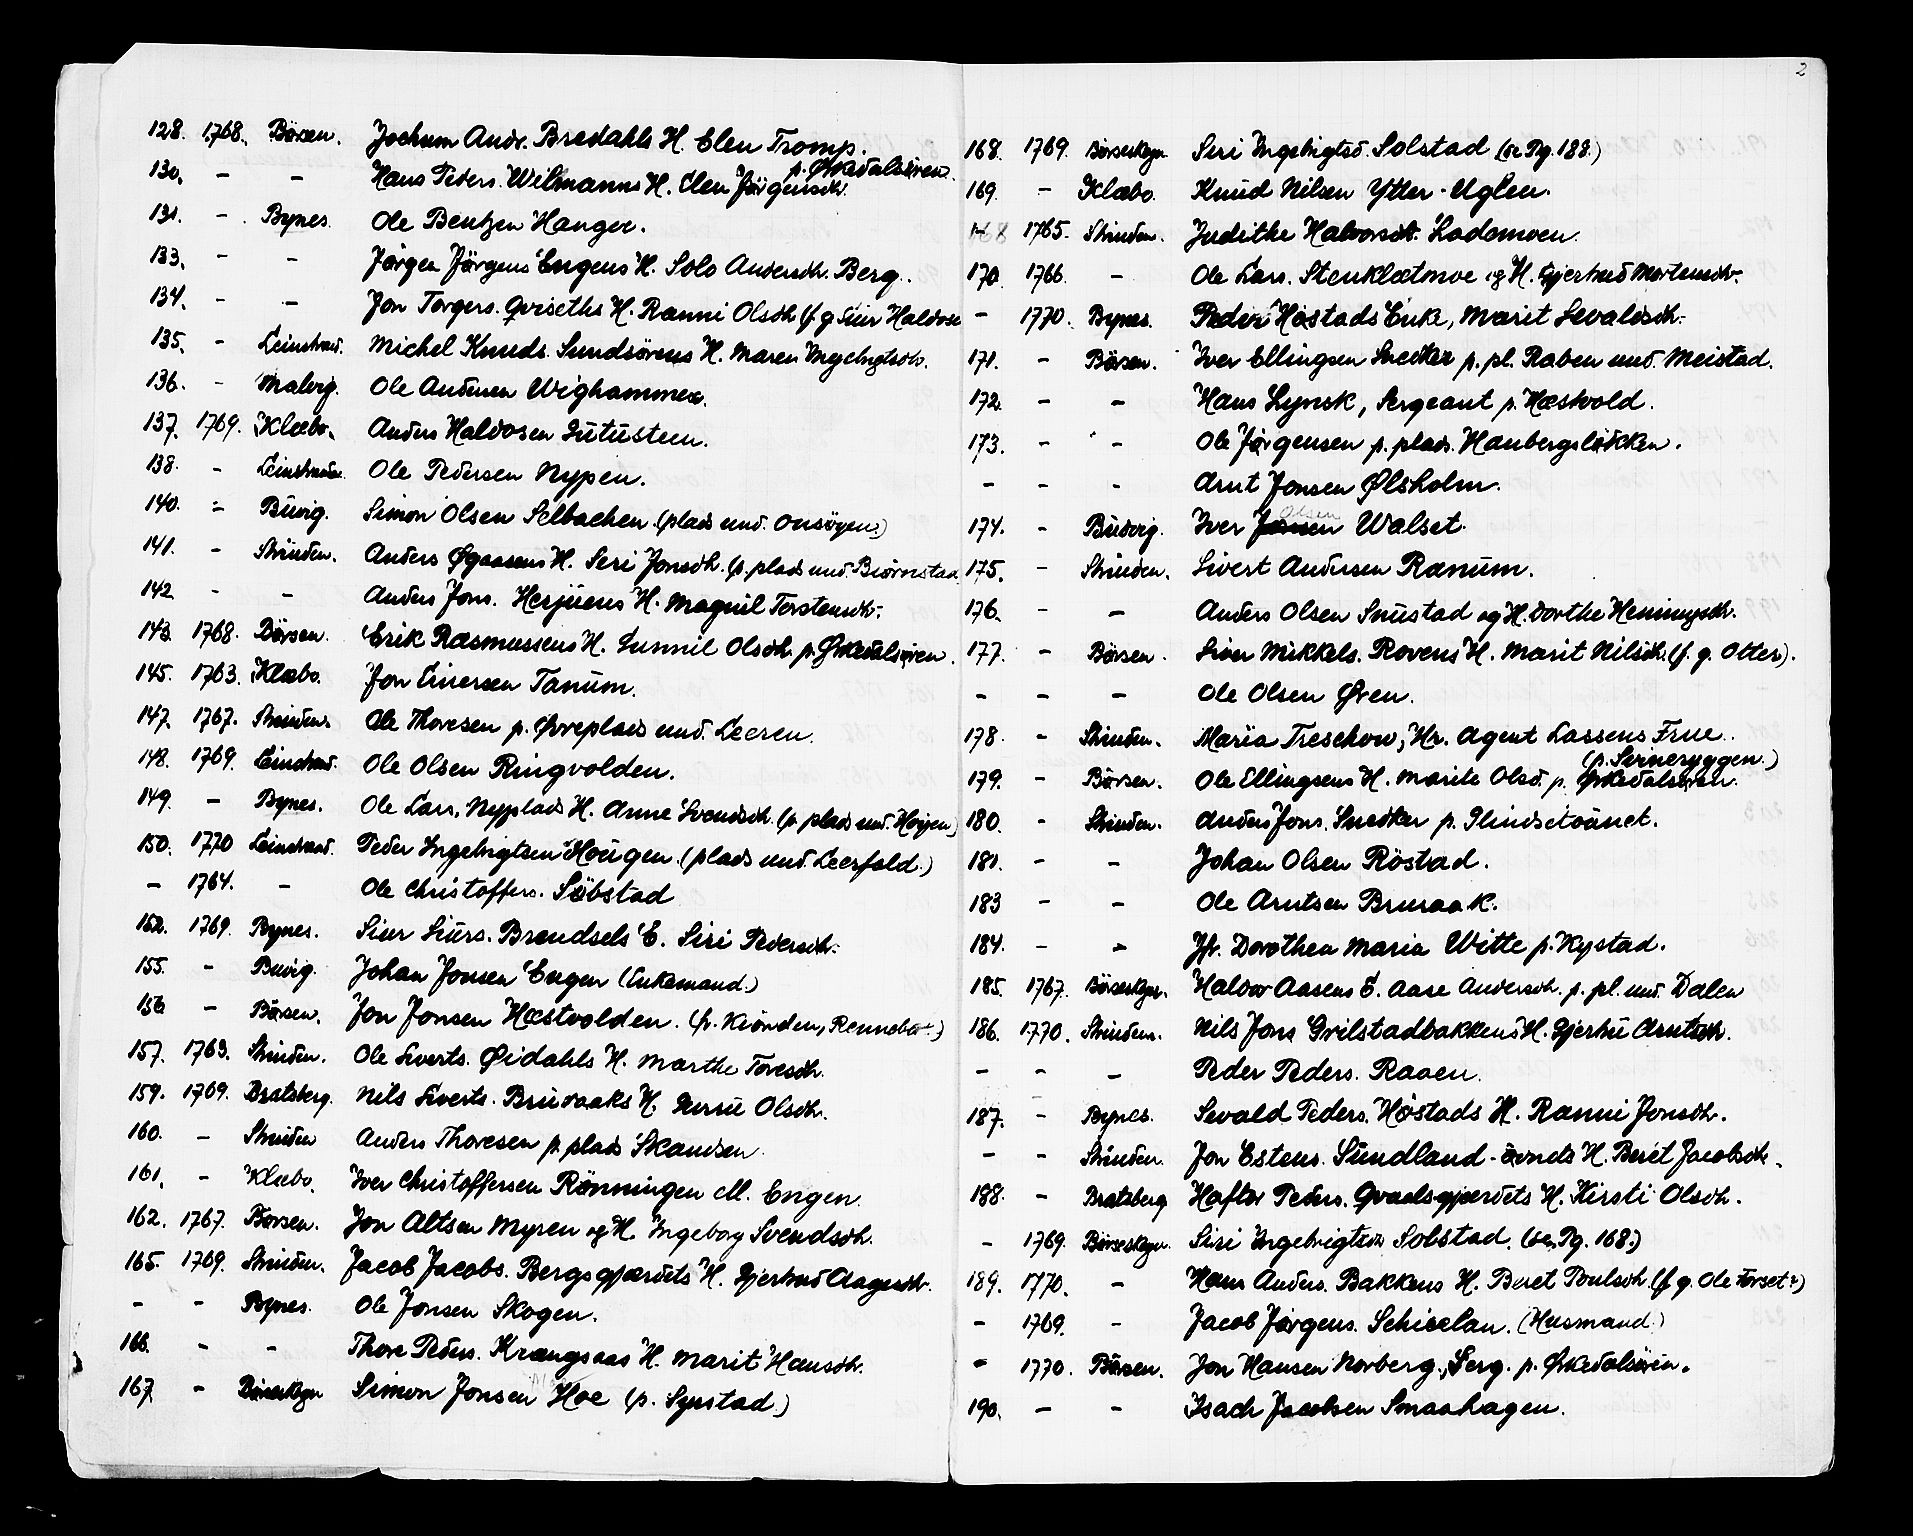 128. 1768. Börsen. Jochum Andr. Bredahls H. Elen Tromp.
130. - - Hans Peders. Wilmanns H. Elen Jörgensdr. p. Ørkedalsören.
131. - Bynes. Ole Bentzen Hanger.
133. - - Jörgen Jörgens Engens H. Solo Andersdr. Berg.
134. - - Jon Torgers. Qviseths H. Ranni Olsdr (f. g Siur Haldose
135. - Leinstrand. Michel Knuds. Sundsörens H. Maren Ingebrigtsdr.
136. - Malvig. Ole Andersen Wighammer.
137. 1769. Klæbo. Anders Haldosen Gutusteen.
138. - Leinstranden. Ole Pedersen Nypen.
140. - Buvig. Simon Olsen Selbachen (plads und. Onsöyen.)
141. - Strinden. Anders Øgaasens H. Seri Jonsdr. (p. plads und. Biörnstad
142 - - Anders Jons. Herjuens H. Magnil Torstensdr.
143. 1768. Börsen. Erik Rasmussens H. Gunnil Olsdr. p. Ørkedalsören.
145. 1763. Klæbo. Jon Einersen Tanum.
147. 1767. Strinden. Ole Thoresen p. Øvreplads und. Leeren.
148. 1769. Leinstrand. Ole Olsen Ringvolden.
149. - Bynes. Ole Lars. Nyplads H. Anne Svendsdr. (p. plads und. Höyen)
150. 1770 Leinstrand. Peder Ingebrigtsen Hougen (plads und. Leerfald.)
- 1764. - Ole Christoffers. Söbstad
152. 1769. Bynes. Siur Siurs. Brendsels E. Siri Pedersdr.
155. - Buvig. Johan Jonsen Engen (Enkemand.)
156 - Börsen. Jon Jonsen Hæstvolden. (p. Kiönden, Rennebo?.)
157. 1763. Strinden. Ole Siverts. Øidahls H. Marthe Toresdr.
159. 1769. Bratsberg. Nils Siverts. Bruraaks H. Gurru Olsdr.
160. - Strinden Anders Thoresen p. plads Skandsen.
161. - Klæbo. Iver Christoffersen Rönningen ell. Engen.
162. 1767. Börsen. Jon Altsen Myren og H. Ingeborg Svendsdr.
165. 1769. Strinden. Jacob Jacobs. Bergsgjærdets H. Gjertrud Aagesdr.
- - Bynes. Ole Jonsen Skogen.
166. - - Thore Peders. Krangsaas H. Marit Hansdr.
167. - Börseskogn Simon Jonsen Hoe (p. Systad.)
2
168. 1769. Börseskogn. Seri Ingebrigtsd. Solstad (se Pg. 188.)
169. - Klæbo. Knud Nilsen Ytter-Uglen.
168 1765. Strinden. Judithe Halvorsdr. Lademoen.
170. 1766. - Ole Lars. Stenkletmoe og H. Gjertrud Mortensdr.
- 1770. Bynes. Peder Höstads Enke, Marit Sevaldsdr.
171. - Börsen. Iver Ellingsen Snedker p. pl. Raben und. Meistad.
172. - - Hans Lynsk, Sergeant p. Hæstvold.
173. - - Ole Jörgensen p. plads. Haubergslökken.
- - - Arnt Jonsen Ølsholm.
Olsen
174. - Budvig. Iver Jonsen Walset.
175. - Strinden. Sivert Andersen Ranum.
176. - - Anders Olsen Snustad og H. Dorthe Henningsdr.
177. - Börsen. Siver Mikkels. Rovens H. Marit Nilsdr. (f. g. Otter).
- - - Ole Olsen Øren.
178. - Strinden. Maria Treschow, Hr. Agent Lassens Frue.
(p. Serineryggen.)
179. - Börsen. Ole Ellingsens H. Marite Olsd. p. Ørkedalsören.
180. - Strinden. Anders Jons. Snedker p. Flindsetvanet.
181. - - Johan Olsen Röstad.
183 - - Ole Arntsen Bruraak.
184. - - Jfr. Dorothea Maria Witte p. Kystad.
185. 1767. Börseskogn. Haldor Aasens E. Aase Andersdr. p. pl. und. Dalen
186. 1770. Strinden. Nils Jons Grilstadbakkens H. Gjertru Arntsdr.
- - - Peder Peders. Raaen.
187. - Bynes. Sevald Peders. Höstads H. Ranni Jonsdr.
- - Strinden. Jon Estens. Sundland-övnets H. Beret Jacobsdr.
188. - Bratsberg Haftor Peders. Qvadsgjærdets H. Kirsti Olsdr.
- 1769. Börseskogn. Siri Ingebrigtsdr. Solstad. (se Pg. 168.)
189. 1770. - Hans Anders. Bakkens H. Beret Poulsdr. (f. g. Ole Forset?)
- 1769. - Jacob Jörgens. Schieelan. (Husmand.)
- 1770. Börsen. Jon Hansen Norberg, Serg. p. Ørkedalsören.
190. - - Isach Jacobsen Smaahagen.